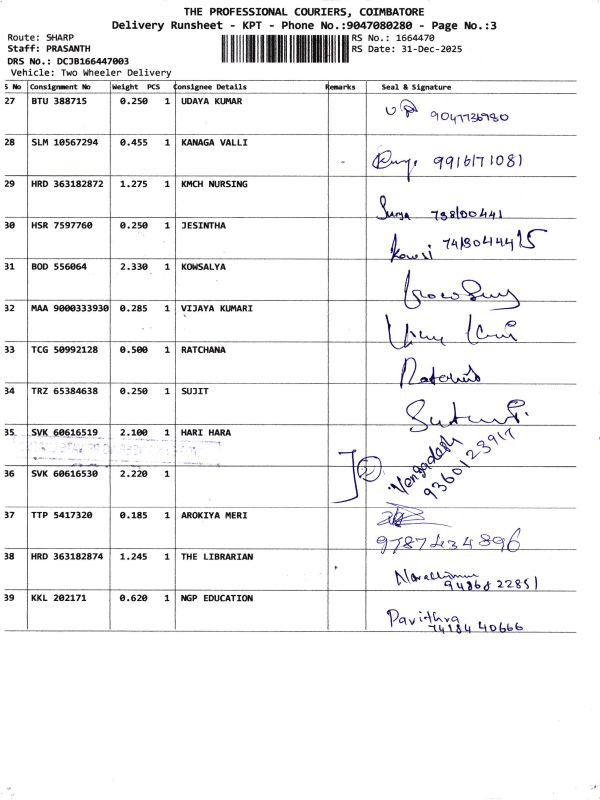 THE PROFESSIONAL COURIERS, COIMBATORE
Delivery Runsheet - KPT - Phone No.:9047080280 - Page No.:3
Route: SHARP RS No.: 1664470
Staff: PRASANTH RS Date: 31-Dec-2025
DRS No.: DCJB166447003
Vehicle: Two Wheeler Delivery
S No Consignment No Weight PCS Consignee Details Remarks Seal & Signature
27 BTU 388715 0.250 1 UDAYA KUMAR
28 SLM 10567294 0.455 1 KANAGA VALLI 9916171081
29 HRD 363182872 1.275 1 KMCH NURSING Surya
30 HSR 7597760 0.250 1 JESINTHA Kowsi
31 BOD 556064 2.330 1 KOWSALYA
32 MAA 9000333930 0.285 1 VIJAYA KUMARI
33 TCG 50992128 0.500 1 RATCHANA
34 TRZ 65384638 0.250 1 SUJIT
35 SVK 60616519 2.100 1 HARI HARA
36 SVK 60616530 2.220 1 2 Vengadesh
9360123917
37 TTP 5417320 0.185 1 AROKIYA MERI
9787434896
38 HRD 363182874 1.245 1 THE LIBRARIAN
9486822851
39 KKL 202171 0.620 1 NGP EDUCATION Pavithra
7418440666